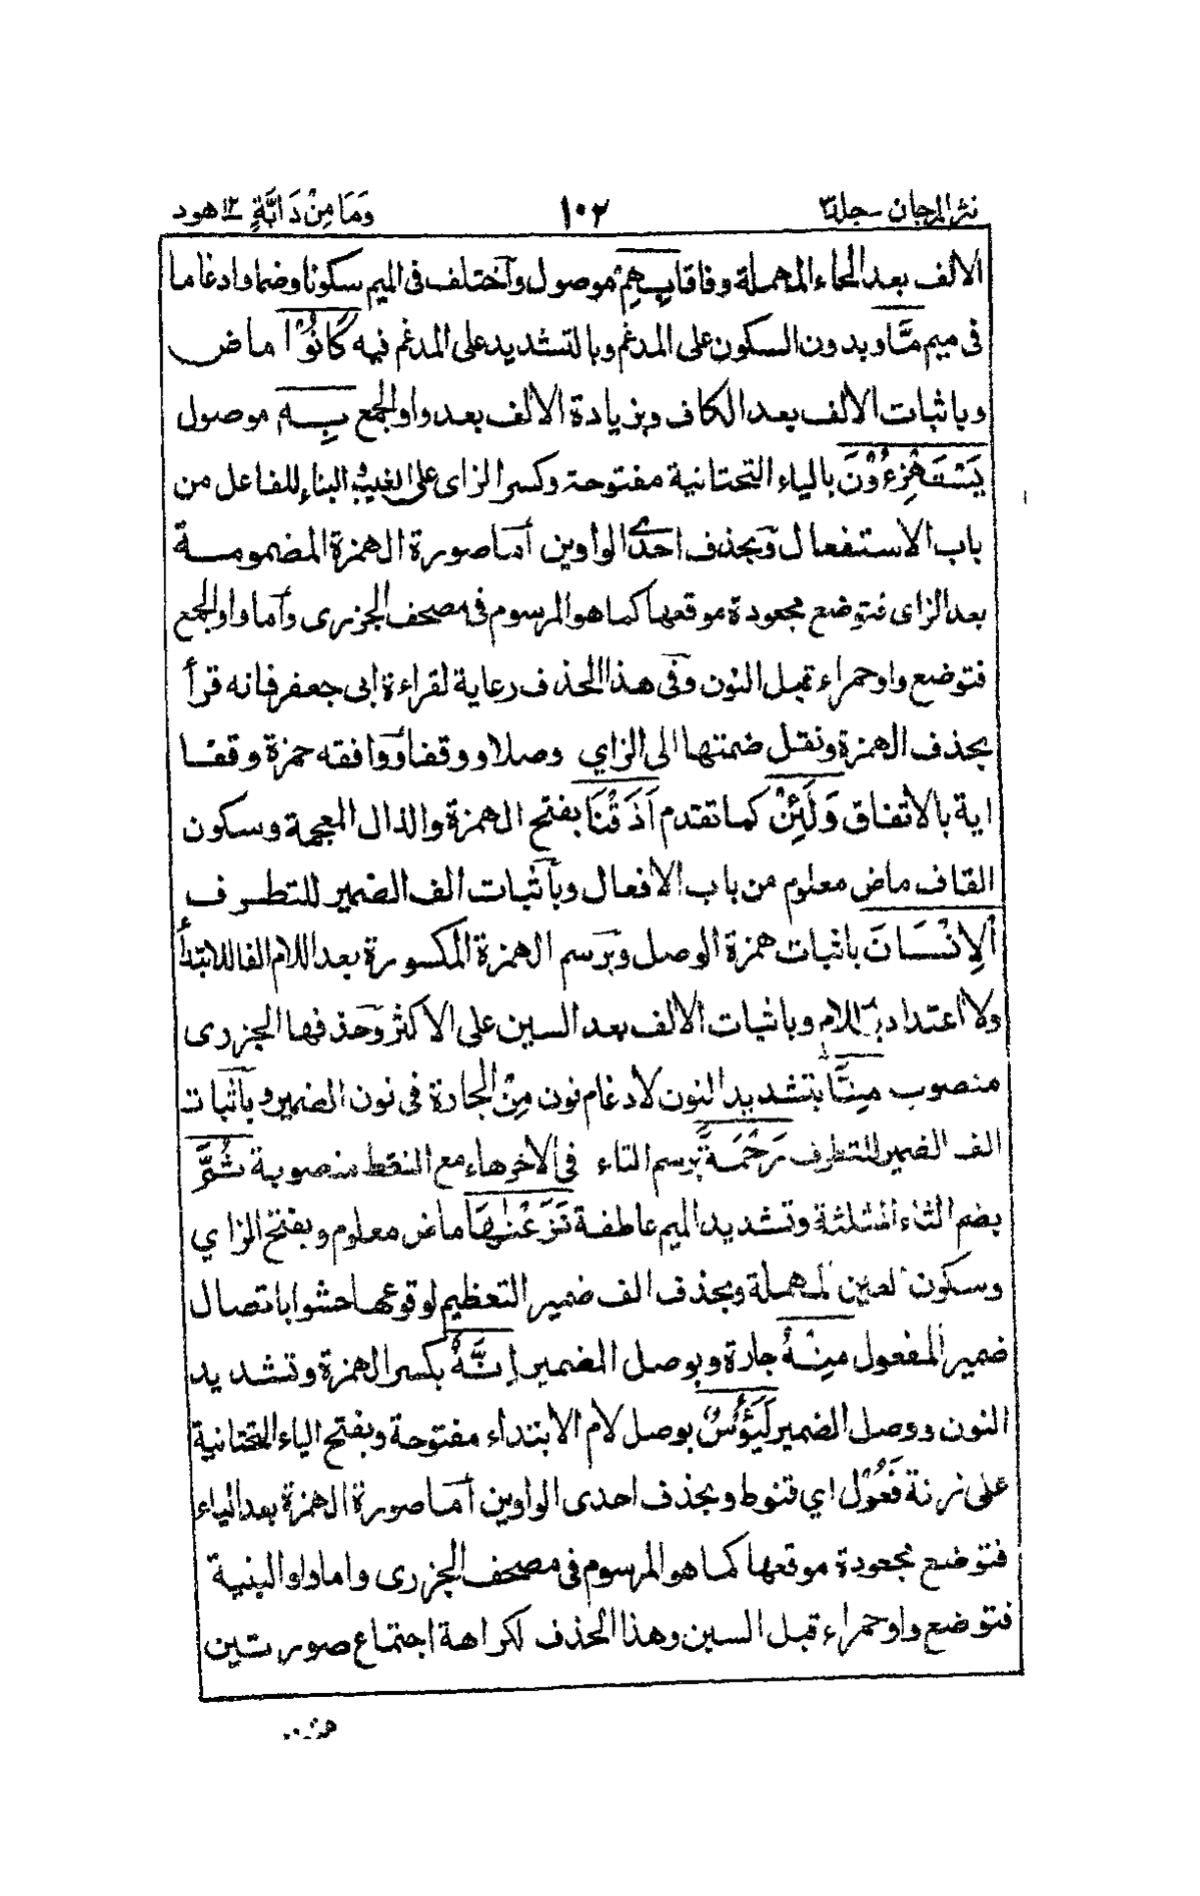 نثر المرجان - جلد ٣ ١٠٢ وَمَا مِنْ دَابَّةٍ ١٢ هود
الالف بعد الحاء المهملة وفاقا بِهِمْ موصول واختلف فى الميم سكونا وضما وادغاما
فى ميم مَّا وبدون السكون على المدغم وبالتشديد على المدغم فيه كَانُوْا ماض
وباثبات الالف بعد الكاف وبزيادة الالف بعد واو الجمع بِهٖ موصول
يَسْتَهْزِءُوْنَ بالياء التحتانية مفتوحة وكسر الزاى على الغيب والبناء للفاعل من
باب الاستفعال وبحذف احدى الواوين أما صورة الهمزة المضمومة
بعد الزاى فتوضع مجعودة موقعها كما هو المرسوم فى مصحف الجزرى وأما واو الجمع
فتوضع واو حمراء قبل النون وفى هذا الحذف رعاية لقراءة ابى جعفر فانه قرأ
بحذف الهمزة ونقل ضمتها الى الزاي وصلا ووقفا ووافقه حمزة وقفا
اية بالاتفاق وَلَئِنْ كما تقدم اَذَقْنَا بفتح الهمزة والذال المعجمة وسكون
القاف ماض معلوم من باب الافعال وبأثبات الف الضمير للتطرف
الْاِنْسَانَ باثبات همزة الوصل وبرسم الهمزة المكسورة بعد اللام الفا للابتدأ
ولا اعتداد باللام وباثبات الالف بعد السين على الاكثر وحذفها الجزرى
منصوب مِنَّا بتشديد النون لادغام نون مِنْ الجارة فى نون الضمير وبأثبات
الف الضمير للتطرف رَحْمَةً برسم التاء فى الاخر هاء مع النقط منصوبة ثُمَّ
بضم الثاء المثلثة وتشديد الميم عاطفة نَزَعْنٰهَا ماض معلوم وبفتح الزاي
وسكون العين المهملة وبحذف الف ضمير التعظيم لوقوعها حشوا باتصال
ضمير المفعول مِنْهُ جارة وبوصل الضمير اِنَّهٗ بكسر الهمزة وتشديد
النون ووصل الضمير لَيَؤُسٌ بوصل لام الابتداء مفتوحة وبفتح الياء التحتانية
على زنة فَعُوْل اي قنوط وبحذف احدى الواوين أما صورة الهمزة بعد الياء
فتوضع مجعودة موقعها كما هو المرسوم فى مصحف الجزرى واما واو البنية
فتوضع واو حمراء قبل السين وهذا الحذف لكراهة اجتماع صورتين